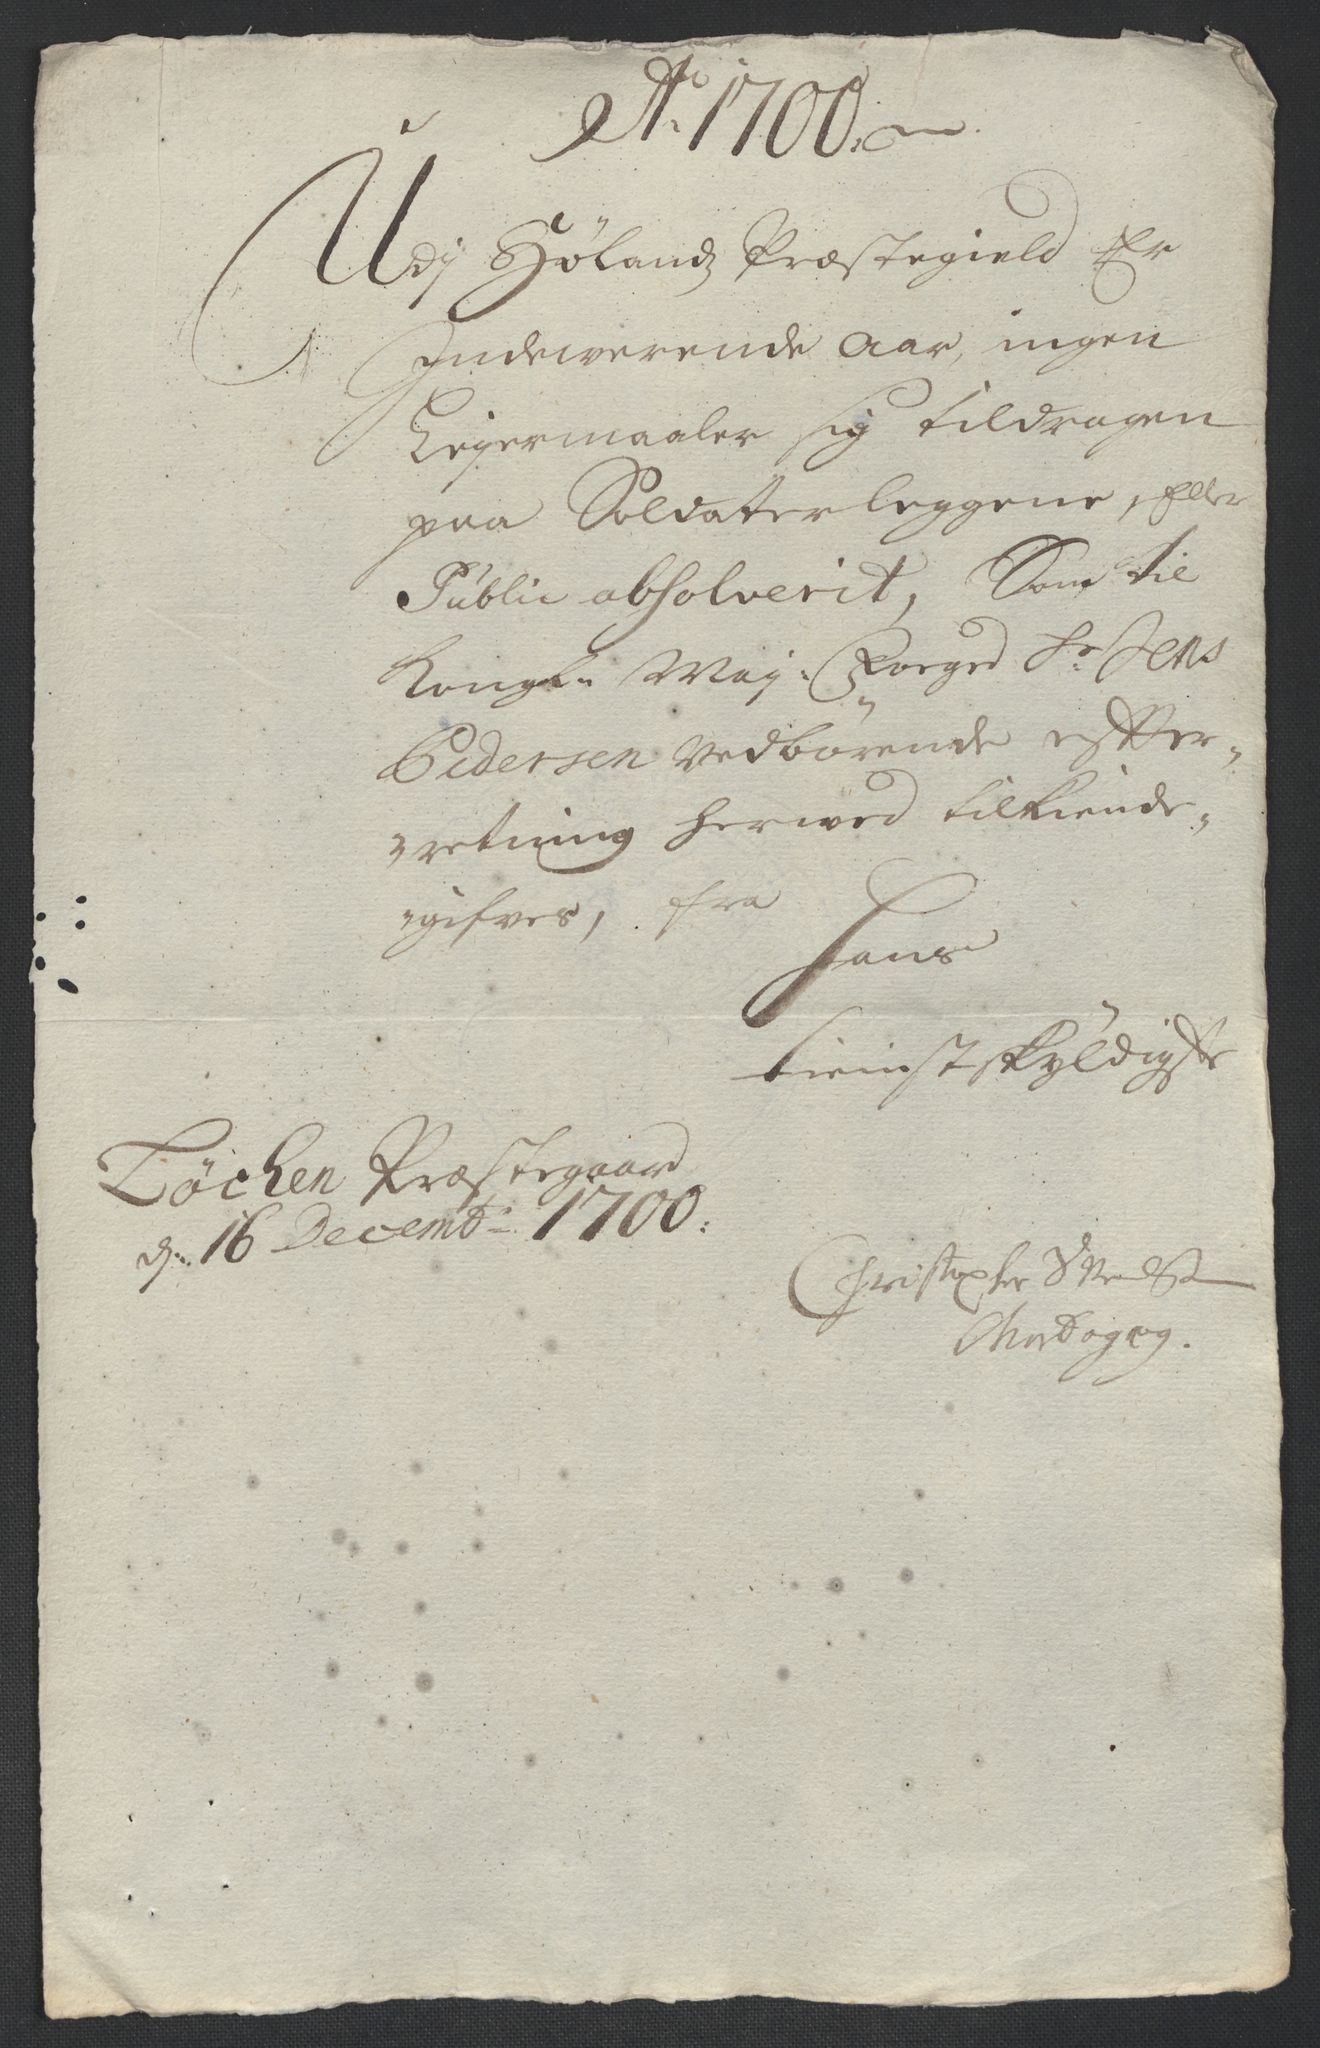 Ao. 1700.
Udj Hølandz Præstegield Er
Indewerende Aar, ingen
Leyermaaler sig tildragen
paa Soldaterleggene, Eller
Public absolverit, Som til
Kongl. May: Foeged Sr Jens
Pedersen vedbørende effter-
retning herwed tilkiende-
gifves, fra
Hans
tienistskÿldigste
Løchen Præstegaard
d: 16 Decembr 1700.
Christopher